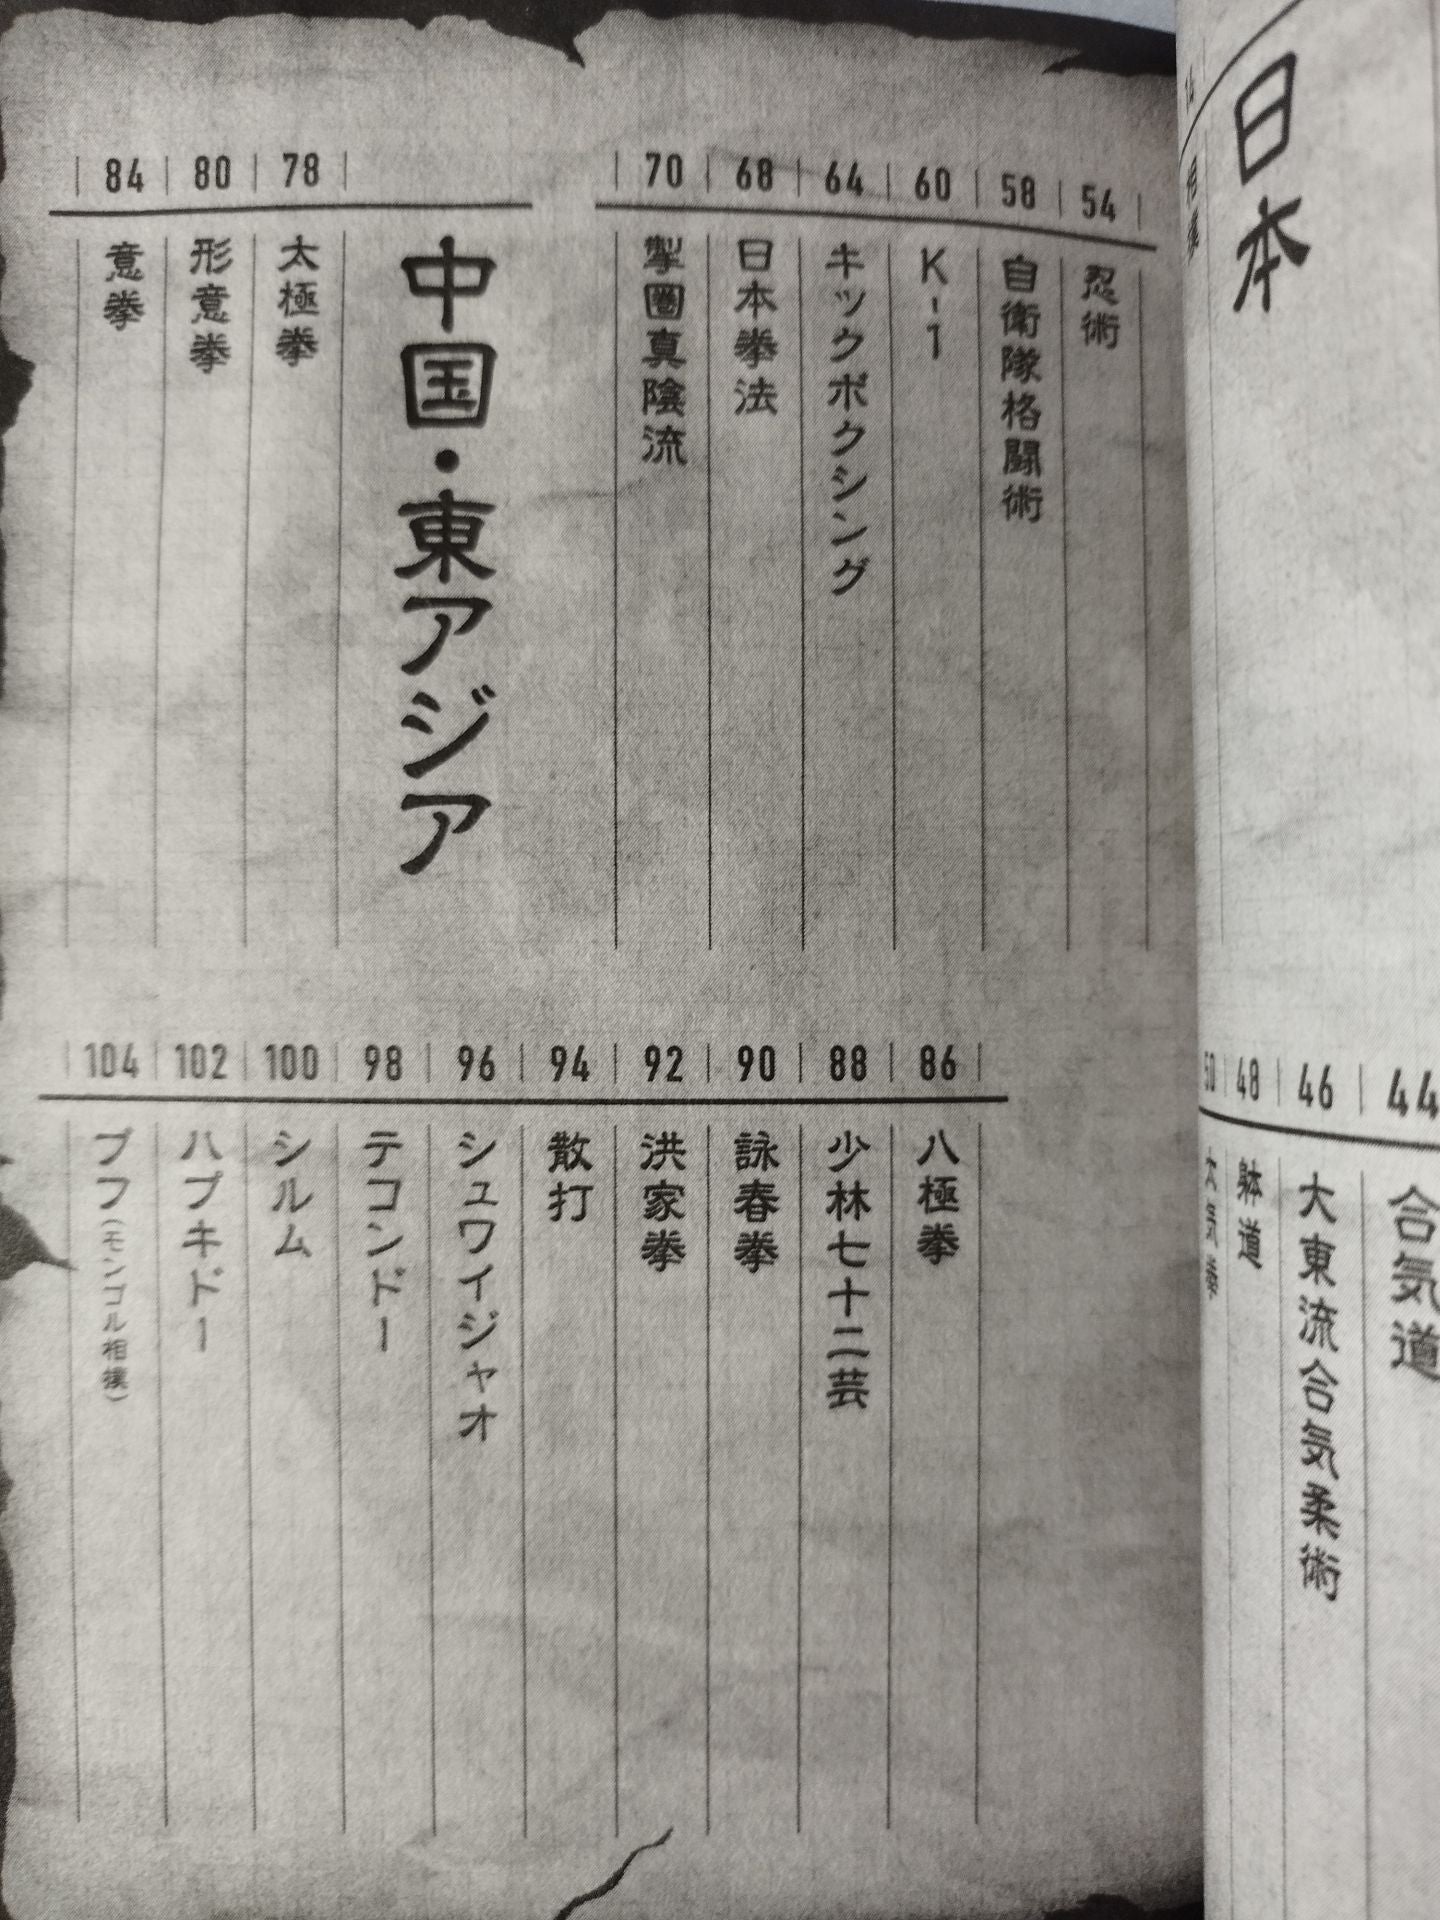 日本
相撲
44
合気道
46
大東流合気柔術
48
躰道
50
54
忍術
58
自衛隊格闘術
60
K-1
64
キックボクシング
68
日本拳法
70
掣圏真陰流
中国・東アジア
78
太極拳
80
形意拳
84
意拳
86
八極拳
88
少林七十二芸
90
詠春拳
92
洪家拳
94
散打
96
シュワイジャオ
98
テコンドー
100
シルム
102
ハプキドー
104
ブフ（モンゴル相撲）